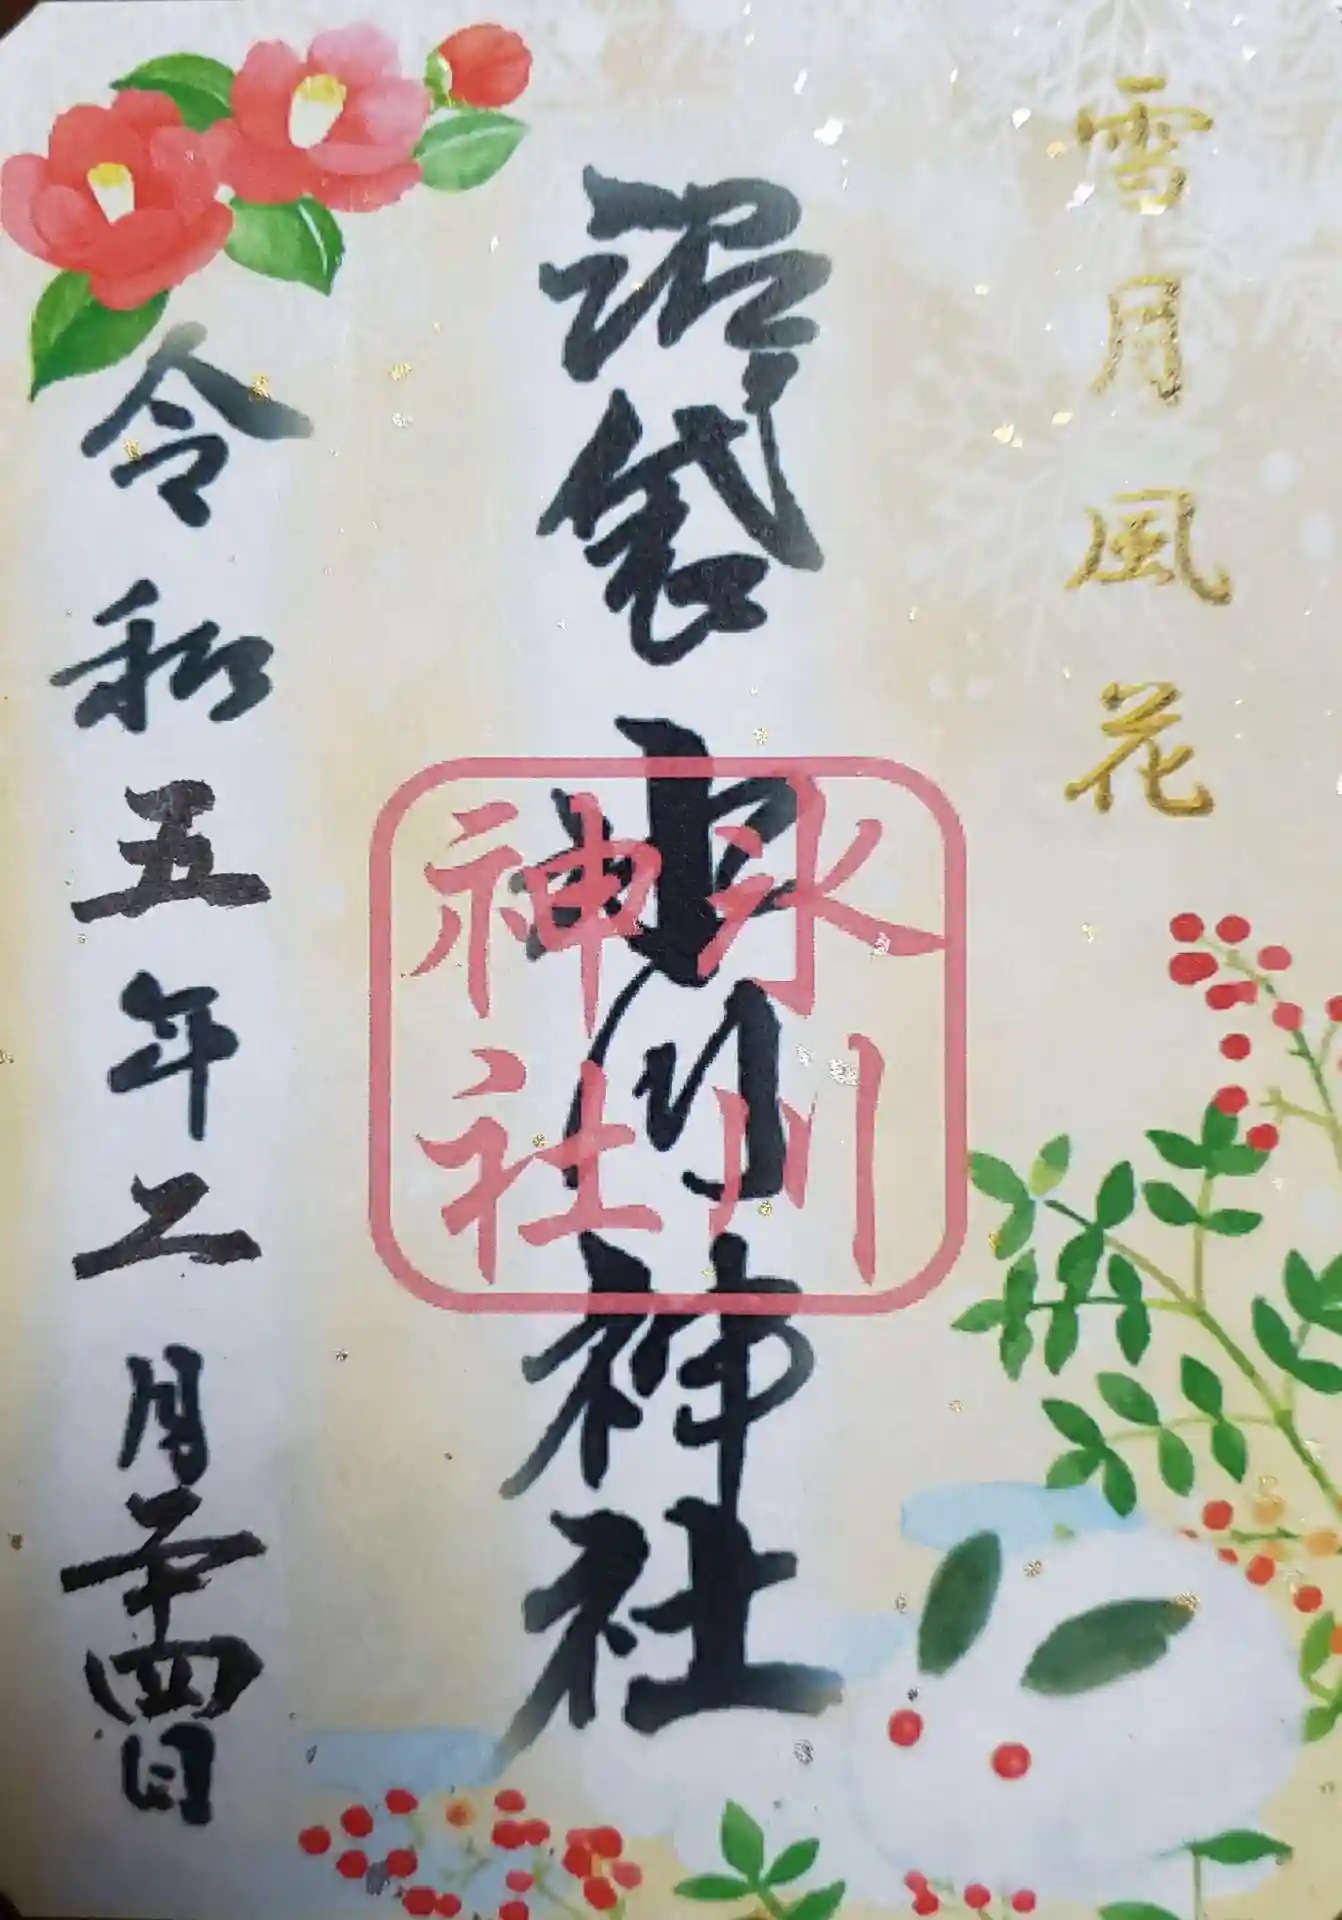 雪月風花
沼袋氷川神社
氷川
神社
令和五年二月二十四日